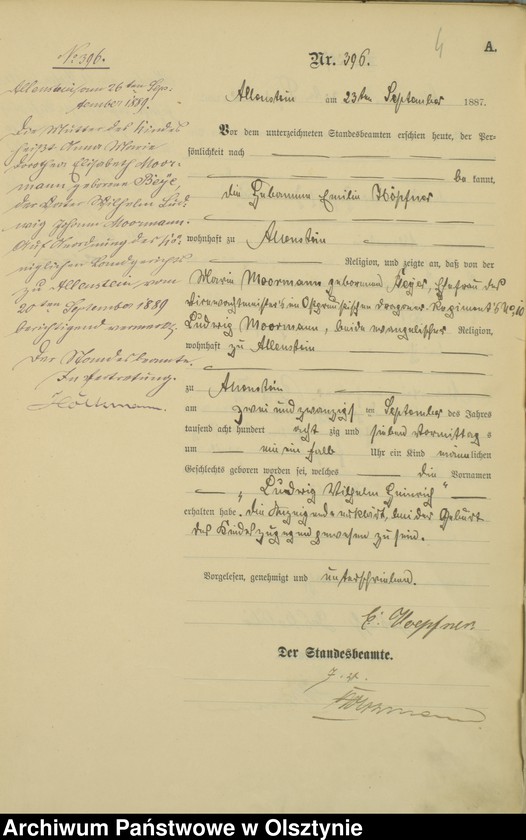 A.
Nr. 396.
Allenstein am 23ten September 1887.
Vor dem unterzeichneten Standesbeamten erschien heute, der Per-
sönlichkeit nach
be kannt,
die Hebamme Emilie Höpfner
wohnhaft zu Allenstein
Religion, und zeigte an, daß von der
Marie Moormann geborenen Beyer, Ehefrau des
Vizewachtmeisters im Ostpreußischen Dragoner Regiment No 10
Ludwig Moormann, beide evangelischer Religion,
wohnhaft zu Allenstein
zu Allenstein
am zwei und zwanzigsten September des Jahres
tausend acht hundert acht zig und sieben Vormittags
um ein halb Uhr ein Kind männlichen
Geschlechts geboren worden sei, welches die Vornamen
„Ludwig Wilhelm Heinrich"
erhalten habe. Die Anzeigende erklärt, bei der Geburt
des Kindes zugegen gewesen zu sein.
Vorgelesen, genehmigt und unterschrieben.
E. Hoepfner
Der Standesbeamte.
J. V.
No 396.
Allenstein am 26ten Sep-
tember 1889.
Die Mutter des Kindes
heißt Anna Marie
Dorothea Elisabeth Moor-
mann geborene Beye,
der Vater Wilhelm Lud-
wig Johann Moormann.
Auf Anordnung des Kö-
niglichen Landgerichts
zu Allenstein vom
20ten September 1889
berichtigend vermerkt.
Der Standesbeamte.
In Vertretung.
Archiwum Państwowe w Olsztynie